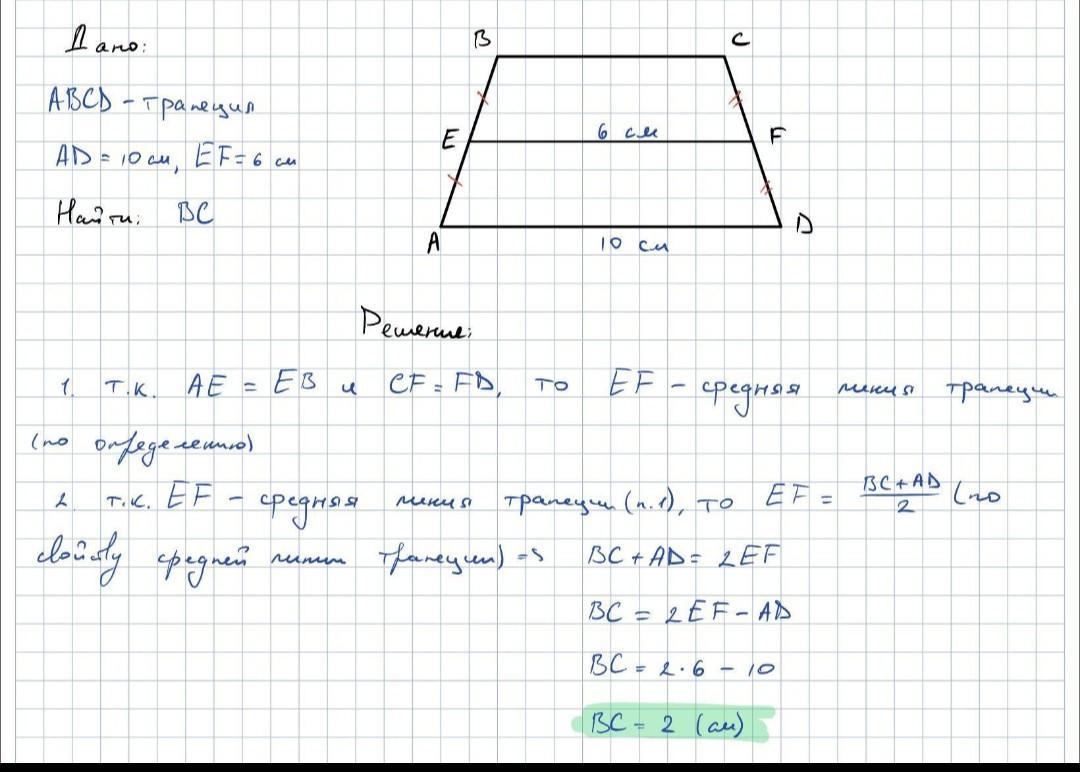 Дано:
ABCD - трапеция
AD = 10 см, EF = 6 см
Найти: BC
B
C
E
6 см
F
A
10 см
D
Решение:
1. т.к. AE = EB и CF = FD, то EF - средняя линия трапеции
(по определению)
2 т.к. EF - средняя линия трапеции (п.1), то EF = (BC+AD)/2 (по
свойству средней линии трапеции) => BC + AD = 2EF
BC = 2EF - AD
BC = 2·6 - 10
BC = 2 (см)